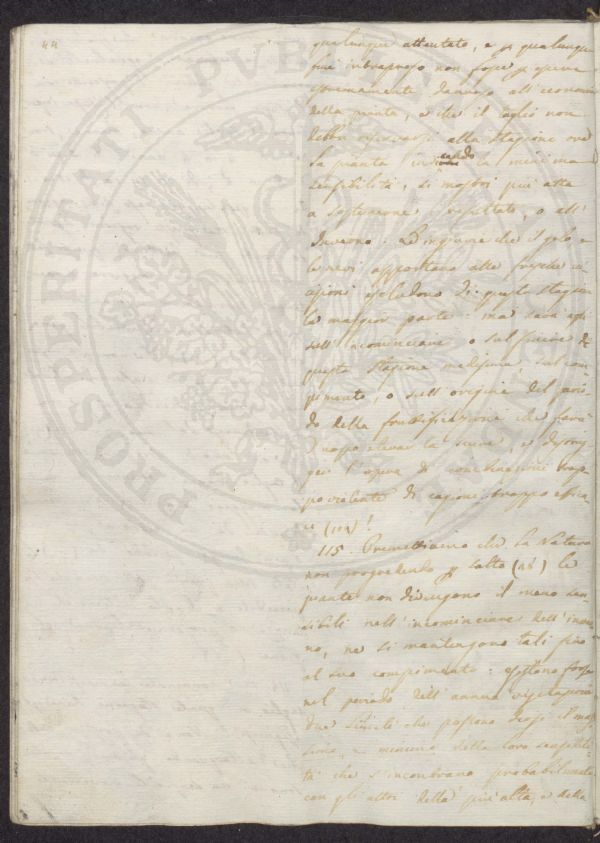 44
qualunque attentato, e p qualunque
fine intrapreso non fosse p essere
sommamente dannoso all'economia
della pianta, e che il taglio non
debba riservarsi alla stagione ove
la pianta indicando la minima
sensibilità, si mostri più atta
a sostenerne l'risultato, o all'
Inverno. La ragione che il gelo e
le nevi apportano alle fresche in
cisioni escludono di questa stagione
la maggior parte: ma sarà essi
sull'incominciare o sul finire di
questa stagione medesima, sul com
pimento, o sull'origine del perio
do della fruttificazione che farà
d'uopo elevar la scure, e disgiun
ger l'opera di combinazioni trop
po violente di cagione troppo effica
ce (114)!
115. Premettiamo che la Natura
non progredendo p salto (28) le
piante non divengono il meno sen
sibili nell'incominciare dell'inver
no, ne si mantengono tali fino
al suo compimento: esistono forse
nel periodo dell'annua vegetazione
due limiti che possono dirsi il mas
simo, e minimo della loro sensibili
tà che s'incontrano probabilmente
con gli altri della più alta, e della
PROSPERITATI PVBLICAE